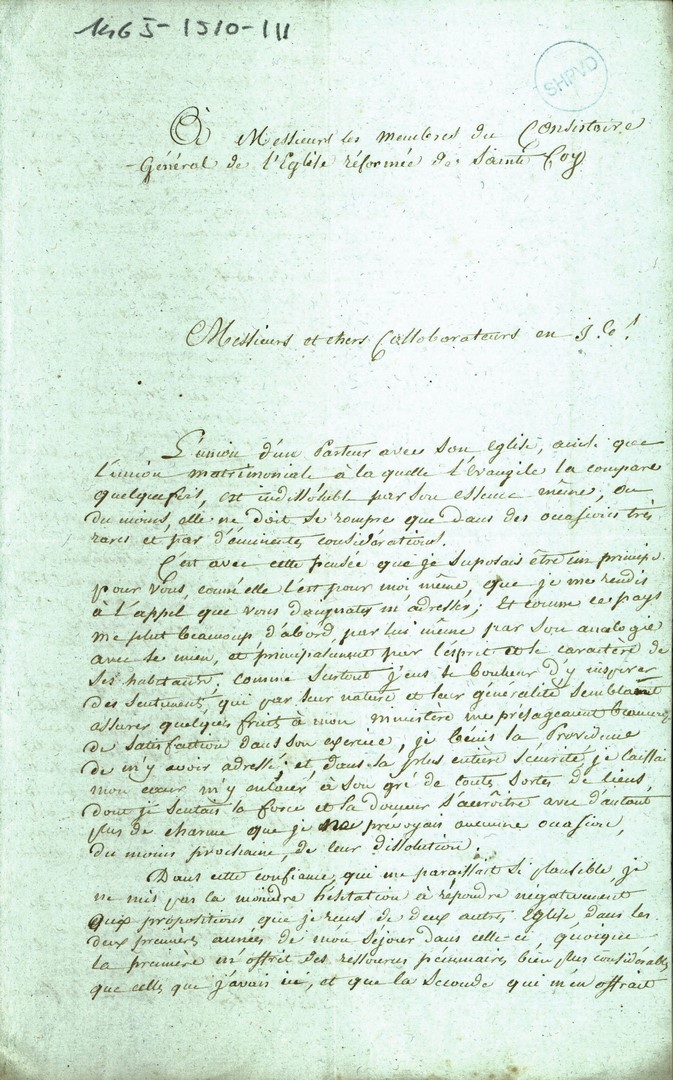 1465-1510-III
SHPVD
À Messieurs les membres du Consistoire
Général de l'Eglise réformée de Sainte Foy
Messieurs et chers Collaborateurs en J. C!
L'union d'un Pasteur avec son Eglise, ainsi que
l'union matrimoniale à la quelle l'Evangile la compare
quelquefois, est indissoluble par son essence même, ou
du moins, elle ne doit se rompre que dans des occasions très
rares et par d'éminentes considérations.
C'est avec cette pensée que je suposais être un principe
pour vous, comm'elle l'est pour moi même, que je me rendis
à l'appel que vous daignates m'adresser; Et comme ce pays
me plut beaucoup d'abord, par lui même par son analogie
avec le mien, et principalement par l'esprit et le caractère de
ses habitants; comme surtout j'eus le bonheur d'y inspirer
des sentiments, qui par leur nature et leur généralité semblaient
assurer quelques fruits à mon ministère me présageaient beaucoup
de satisfaction dans son exercice, je bénis la Providence
de m'y avoir adressé; et dans la plus entière sécurité, je laissai
mon cœur m'y enlacer à son gré de toutes sortes de liens,
dont je sentais la force et la douceur s'accroître avec d'autant
plus de charme que je ne prévoyais aucune occasion,
du moins prochaine, de leur dissolution.
Dans cette confiance, qui me paraissait si plausible, je
ne mis pas la moindre hésitation à répondre négativement
aux propositions que je reçus de deux autres Eglise dans les
deux premières années de mon séjour dans celle-ci, quoique
la première m'offrit des ressources pécuniaires bien plus considérables
que celles que j'avais ici, et que la seconde qui m'en offrait